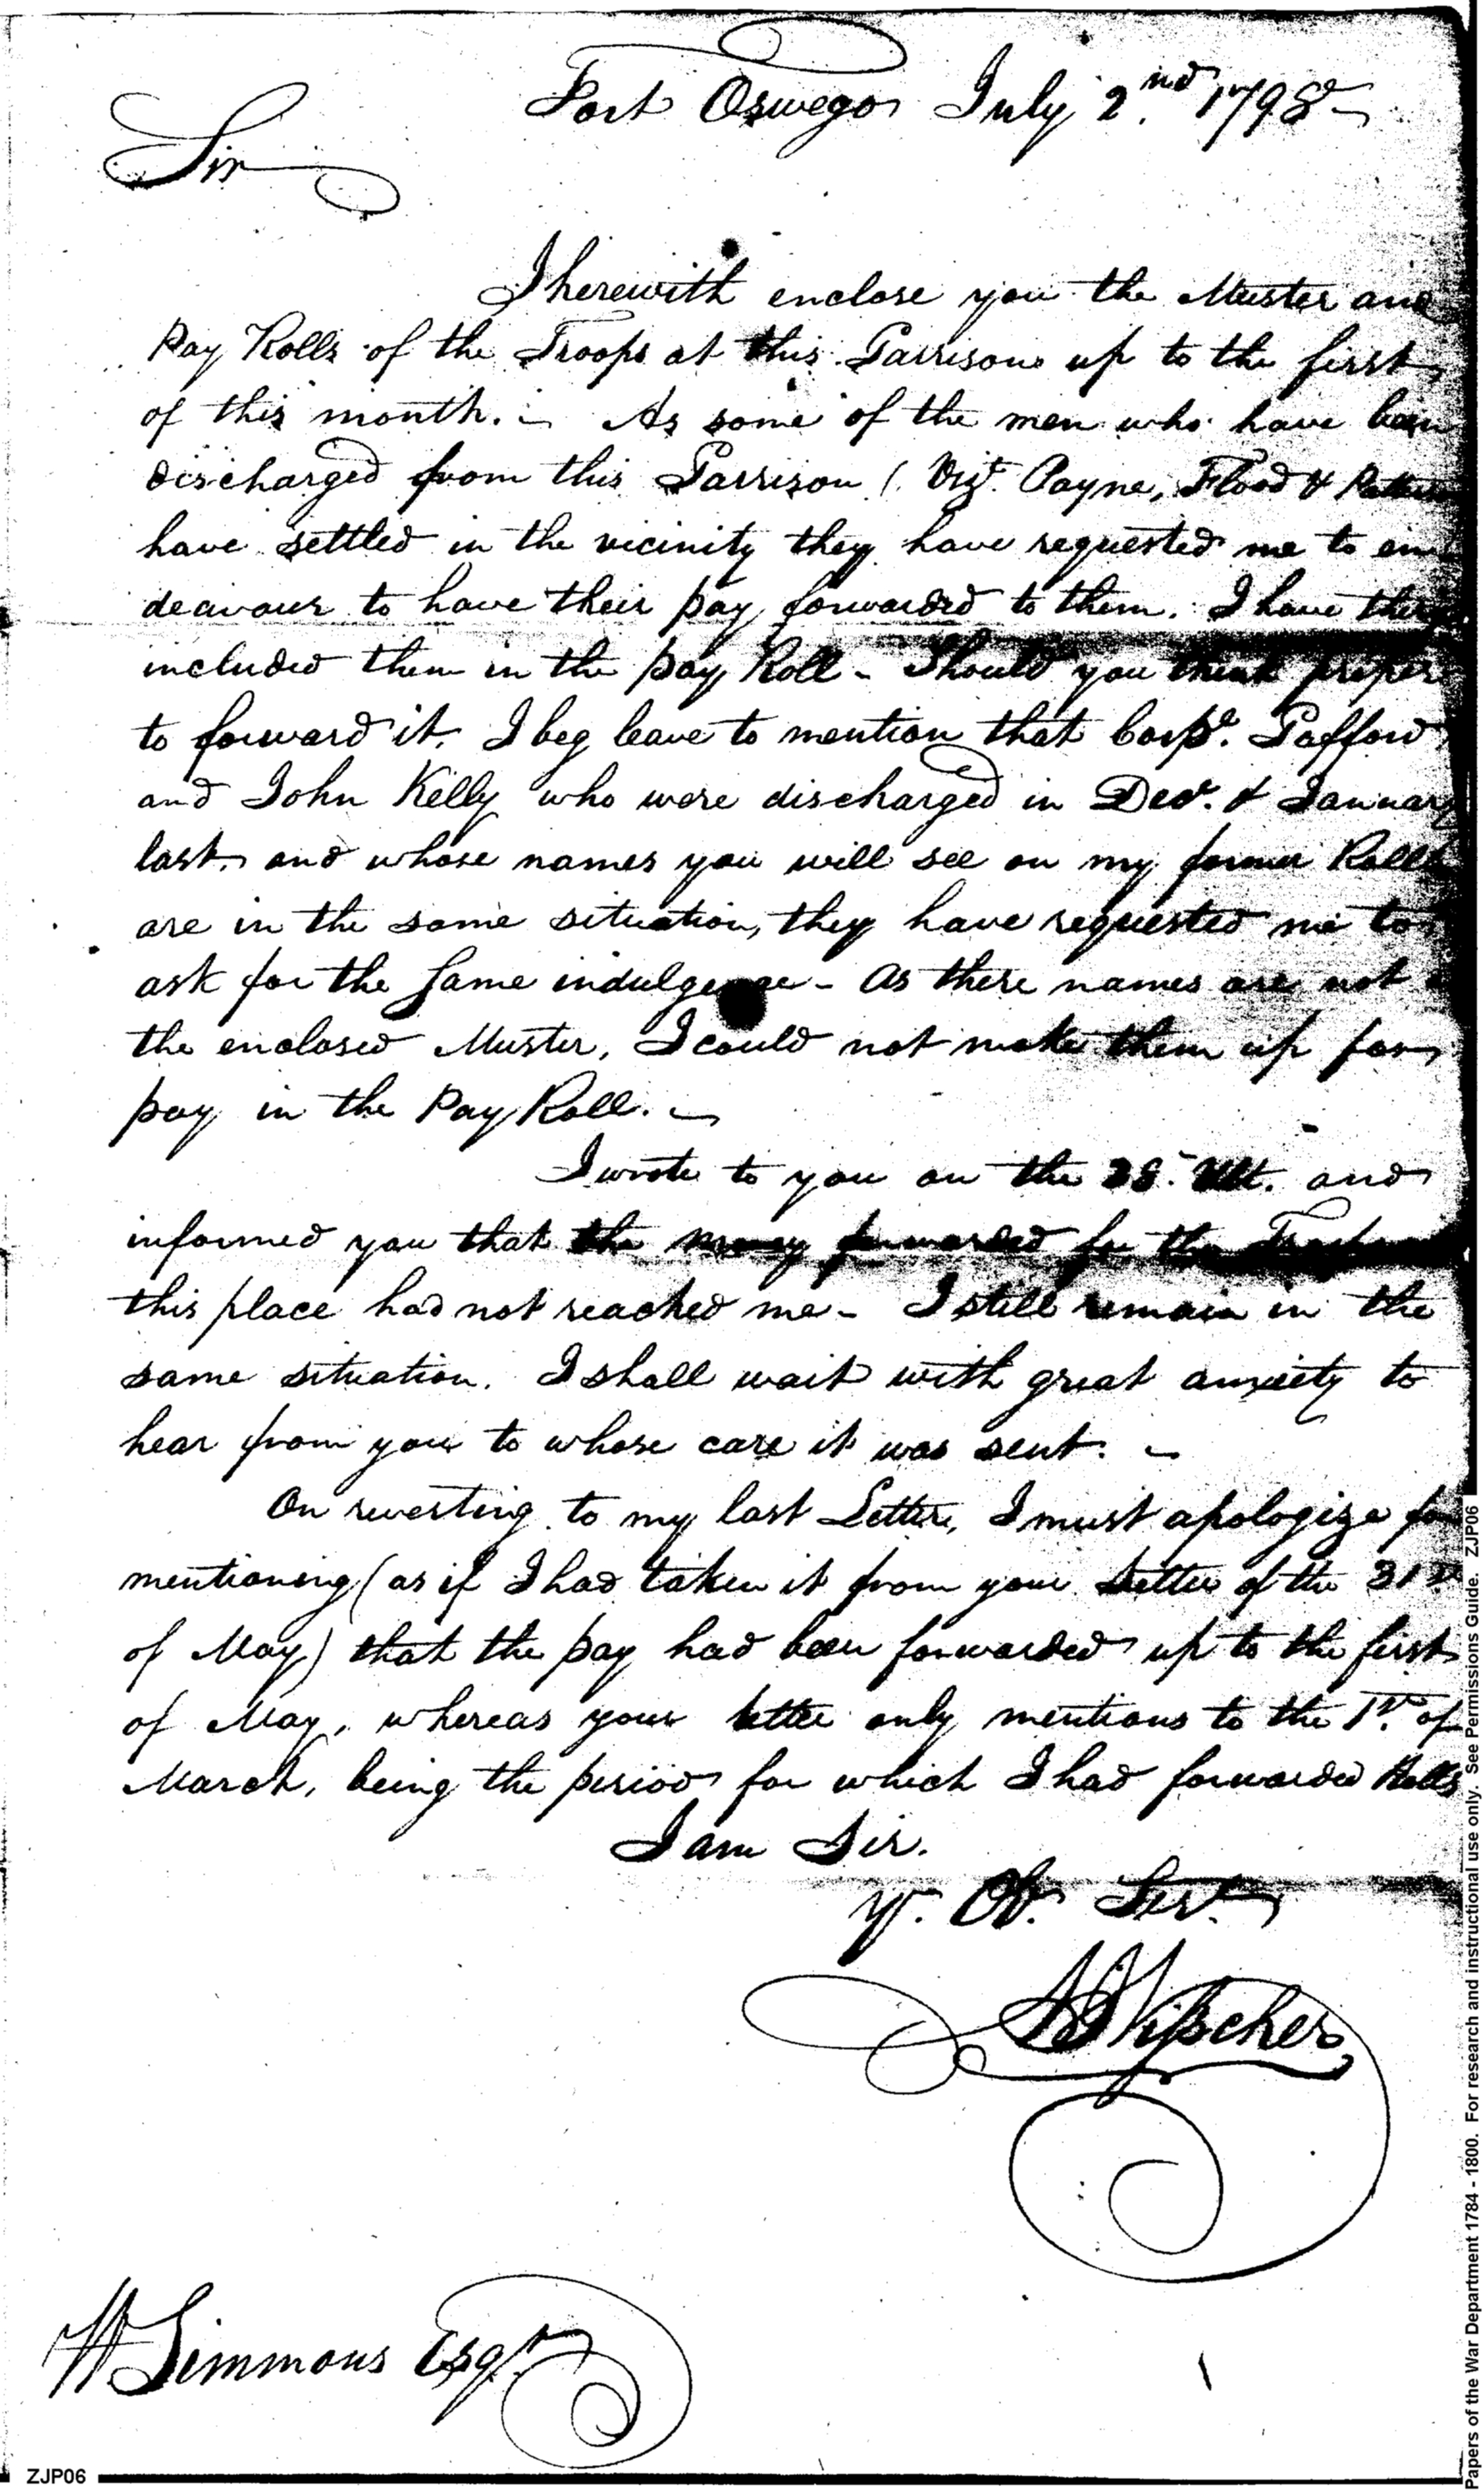 Fort Oswego July 2nd. 1798
Sir
I herewith enclose you the Muster and
Pay Rolls of the Troops at this Garrison up to the first
of this month. – As some of the men who have been
discharged from this Garrison (Vizt. Payne, Flood &
have settled in the vicinity they have requested me to en
deavour to have their pay forwarded to them. I have
included them in the pay Roll – Should you think proper
to forward it. I beg leave to mention that Corpl. Pafford
and John Kelly who were discharged in Decr. & January
last, and whose names you will see on my former Rolls
are in the same situation, they have requested me to
ask for the same indulgence – As there names are not
the enclosed Muster, I could not make them up for
pay in the Pay Roll. –
I wrote to you on the 28. Ult. and
informed you that the money forwarded for the Troops
this place had not reached me – I still remain in the
same situation. I shall wait with great anxiety to
hear from you to whose care it was sent. –
On reverting to my last Letter, I must apologize for
mentioning (as if I had taken it from your Letter of the 31st
of May) that the pay had been forwarded up to the first
of May, whereas your letter only mentions to the 1st. of
March, being the period for which I had forwarded Rolls
I am Sir.
Yr. Ob. Servt.
N Visscher
W Simmons Esqr.
ZJP06
Papers of the War Department 1784 - 1800. For research and instructional use only. See Permissions Guide. ZJP06